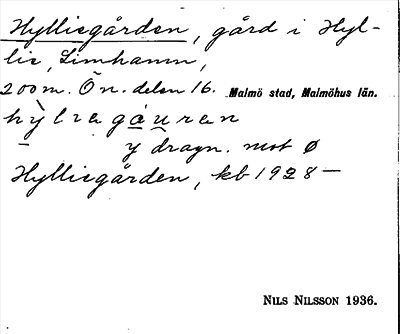 Hylliegården, gård i Hyl-
lie, Limhamn,
200 m. Ö n. delen 16. Malmö stad, Malmöhus län.
hỳlıagáuran
y dragn. mot ø
Hylliegården, kb 1928—
NILS NILSSON 1936.